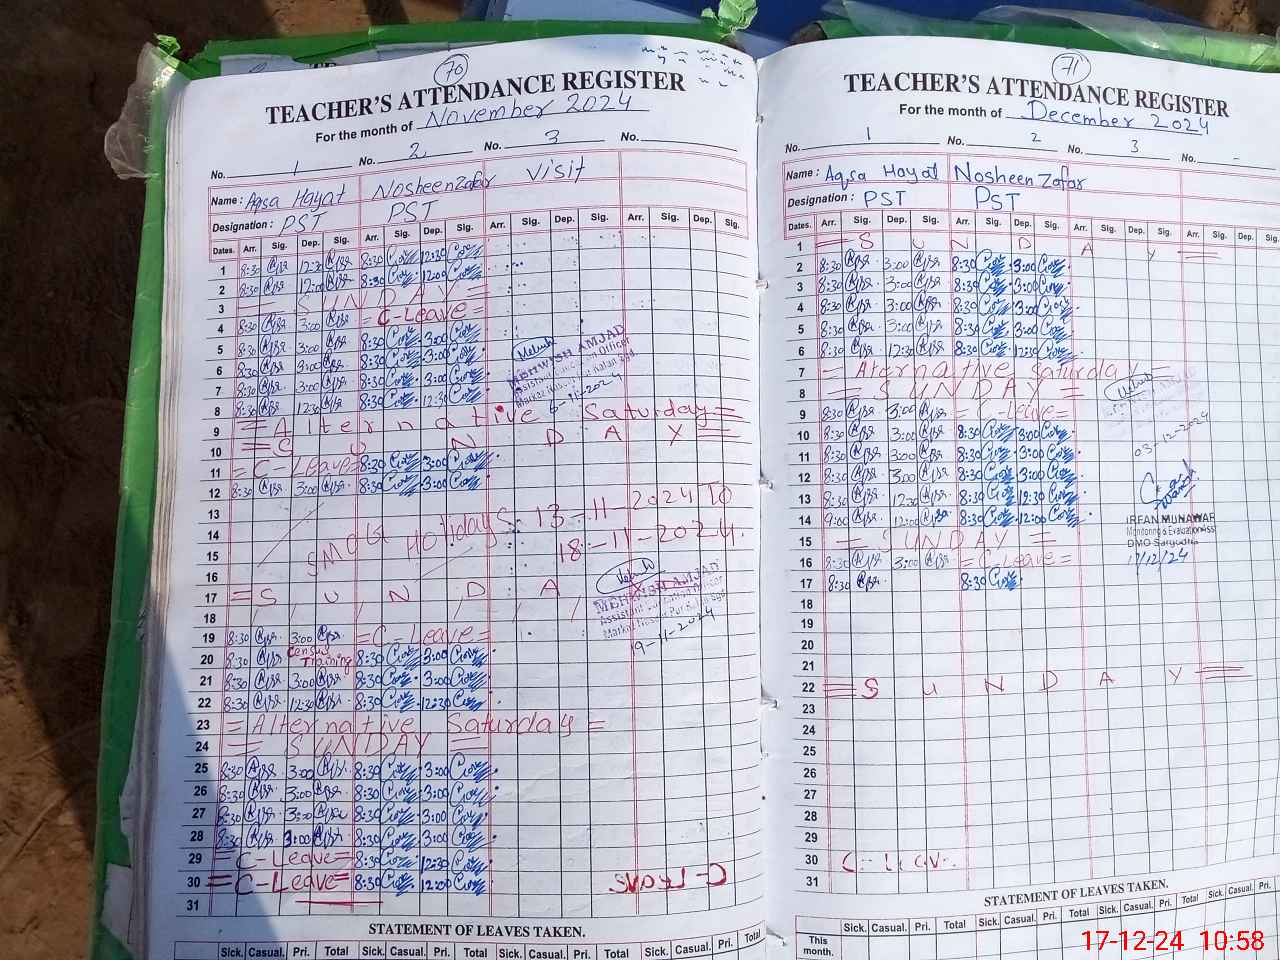 70
TEACHER'S ATTENDANCE REGISTER
For the month of November 2024
No. 1 No. 2 No. 3 No.
Name : Aqsa Hayat Nosheen Zafar Visit
Designation : PST PST
Dates. Arr. Sig. Dep. Sig. Arr. Sig. Dep. Sig. Arr. Sig. Dep. Sig. Arr. Sig. Dep. Sig.
1 8:30 12:30 8:30 12:30
2 8:30 12:00 8:30 12:00
3 = SUNDAY =
4 8:30 3:00 = C-Leave =
5 8:30 3:00 8:30 3:00
6 8:30 3:00 8:30 3:00
7 8:30 3:00 8:30 3:00
8 8:30 12:30 8:30 12:30
9 = Alternative Saturday =
10 = SUNDAY =
11 = C-Leave = 8:30 3:00
12 8:30 3:00 8:30 3:00
13
14 SMOG Holidays: 13-11-2024 To
15 18-11-2024.
16
17 = SUNDAY
18
19 8:30 3:00 = C-Leave =
20 8:30 Census Training 8:30 3:00
21 8:30 3:00 8:30 3:00
22 8:30 12:30 8:30 12:30
23 = Alternative Saturday =
24 = SUNDAY =
25 8:30 3:00 8:30 3:00
26 8:30 3:00 8:30 3:00
27 8:30 3:00 8:30 3:00
28 8:30 3:00 8:30 3:00
29 = C-Leave = 8:30 12:30
30 = C-Leave = 8:30 12:00
31
MEHWISH AMJAD
Assistant Education Officer
MEHWISH AMJAD
Assistant Education Officer
STATEMENT OF LEAVES TAKEN.
Sick. Casual. Pri. Total Sick. Casual. Pri. Total Sick. Casual. Pri. Total Sick. Casual. Pri. Total
71
TEACHER'S ATTENDANCE REGISTER
For the month of December 2024
No. 1 No. 2 No. 3 No. -
Name : Aqsa Hayat Nosheen Zafar
Designation : PST PST
Dates. Arr. Sig. Dep. Sig. Arr. Sig. Dep. Sig. Arr. Sig. Dep. Sig. Arr. Sig. Dep. Sig.
1 = SUNDAY =
2 8:30 3:00 8:30 3:00
3 8:30 3:00 8:30 3:00
4 8:30 3:00 8:30 3:00
5 8:30 3:00 8:30 3:00
6 8:30 12:30 8:30 12:30
7 = Alternative Saturday =
8 = SUNDAY =
9 8:30 3:00 = C-Leave =
10 8:30 3:00 8:30 3:00
11 8:30 3:00 8:30 3:00
12 8:30 3:00 8:30 3:00
13 8:30 12:30 8:30 12:30
14 9:00 12:00 8:30 12:00
15 = SUNDAY =
16 8:30 3:00 = C-Leave =
17 8:30 8:30
18
19
20
21
22 = SUNDAY =
23
24
25
26
27
28
29
30
31
03-12-2024
IRFAN MUNAWAR
Monitoring & Evaluation Asst
DMO Sargodha
17/12/24
STATEMENT OF LEAVES TAKEN.
Sick. Casual. Pri. Total Sick. Casual. Pri. Total Sick. Casual. Pri. Total Sick. Casual.
This month.
17-12-24 10:58